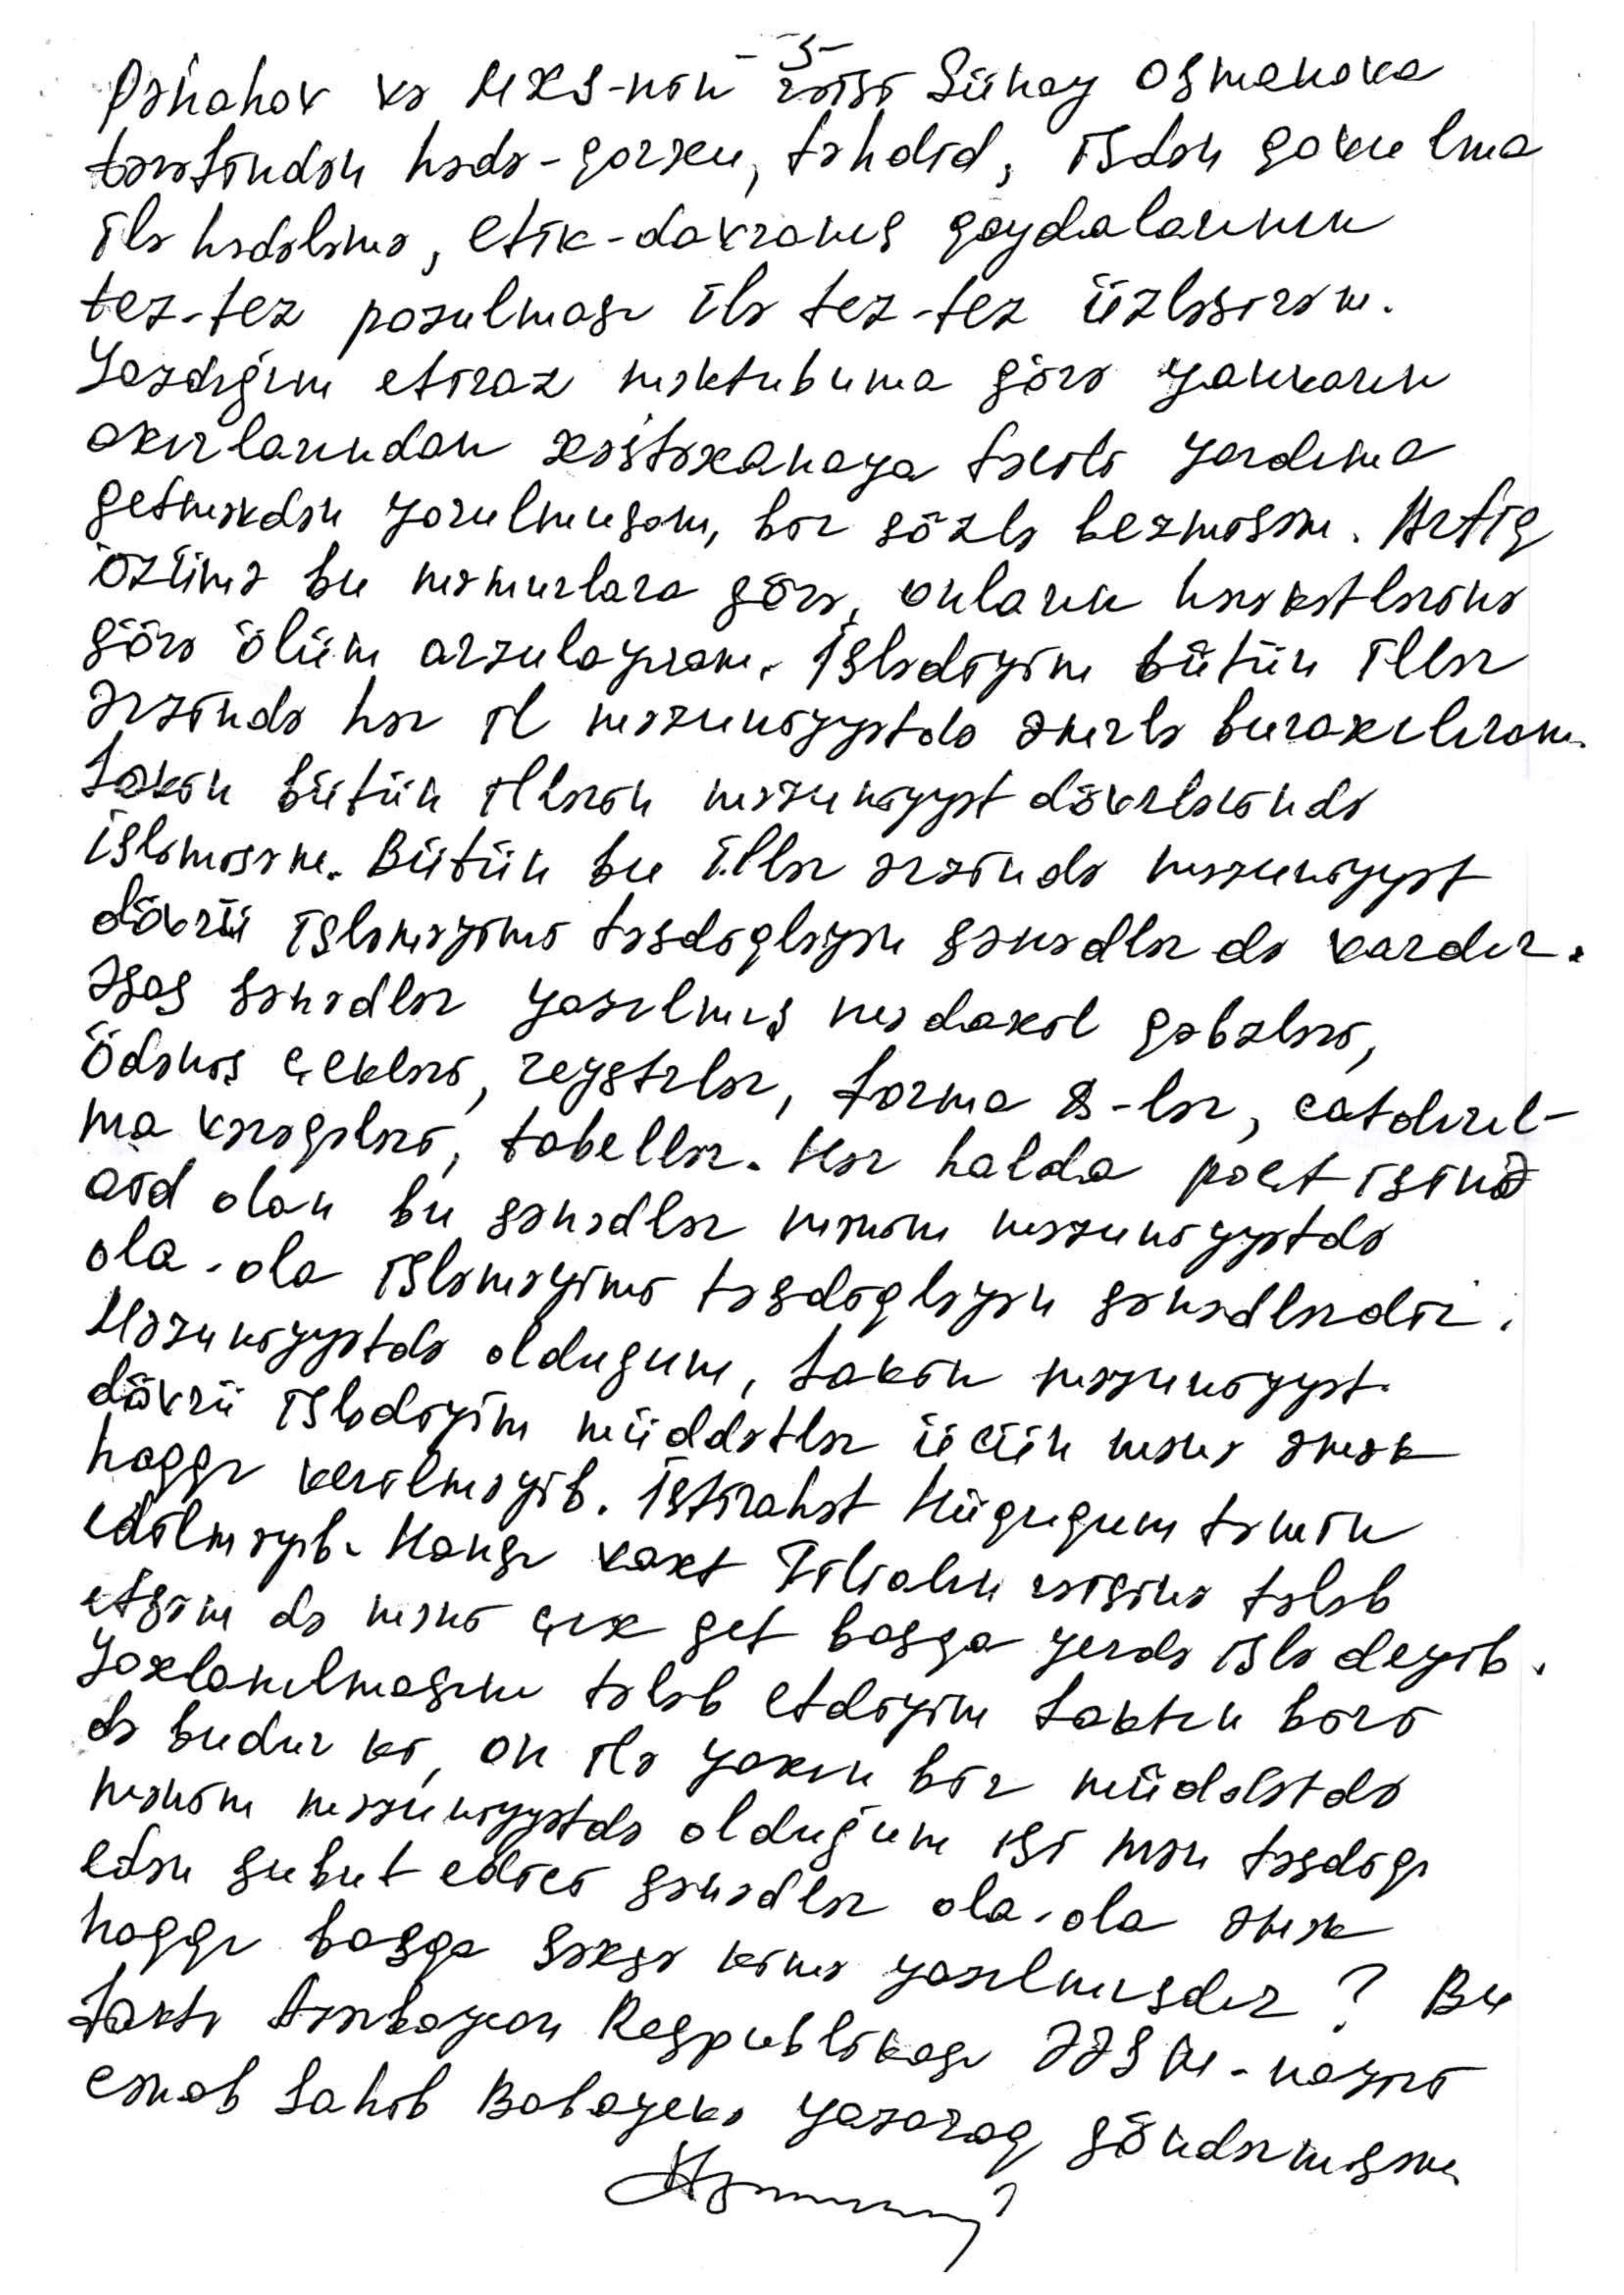 -5-
Pənahov və MXS-nin rəisi Sünay Osmanova
tərəfindən hədə-qorxu, təhdid, işdən qovulma
ilə hədələmə, etik-davranış qaydalarının
tez-tez pozulması ilə tez-tez üzləşirəm.
Yazdığım etiraz məktubuma görə yanvarın
axırlarından xəstəxanaya təcili yardıma
getməkdən yorulmuşam, bir sözlə bezmişəm. Artıq
özümə bu məmurlara görə, onların hərəkətlərinə
görə ölüm arzulayıram. İşlədiyim bütün illər
ərzində hər il məzuniyyətdə əmrlə buraxılıram.
Lakin bütün illərin məzuniyyət dövrlərində
işləmişəm. Bütün bu illər ərzində məzuniyyət
dövrü işləməyimi təsdiqləyən sənədlər də vardır.
Əsas sənədlər yazılmış mədaxil qəbzləri,
ödəniş çekləri, reystrlər, forma 8-lər, çatdırıl-
ma vərəqələri, tabellər. Hər halda poçt işinə
aid olan bu sənədlər mənim məzuniyyətdə
ola-ola işləməyimi təsdiqləyən sənədlərdir.
Məzuniyyətdə olduğum, lakin məzuniyyət
dövrü işlədiyim müddətlər üçün mənə əmək
haqqı verilməyib. İstirahət Hüququm təmin
edilməyib. Hansı vaxt Filialın rəisinə tələb
etsəm də məni çıx get başqa yerdə işlə deyib.
Yoxlanılmasını tələb etdiyim faktın biri
də budur ki, on ilə yaxın bir müddətdə
mənim məzuniyyətdə olduğum işi mən təsdiqi
edən sübut edici sənədlər ola-ola əmək
haqqı başqa şəxsə kimə yazılmışdır? Bu
faktı Azərbaycan Respublikası ƏƏSM-naziri
cənab Sahib Babayevə yazaraq göndərmişəm